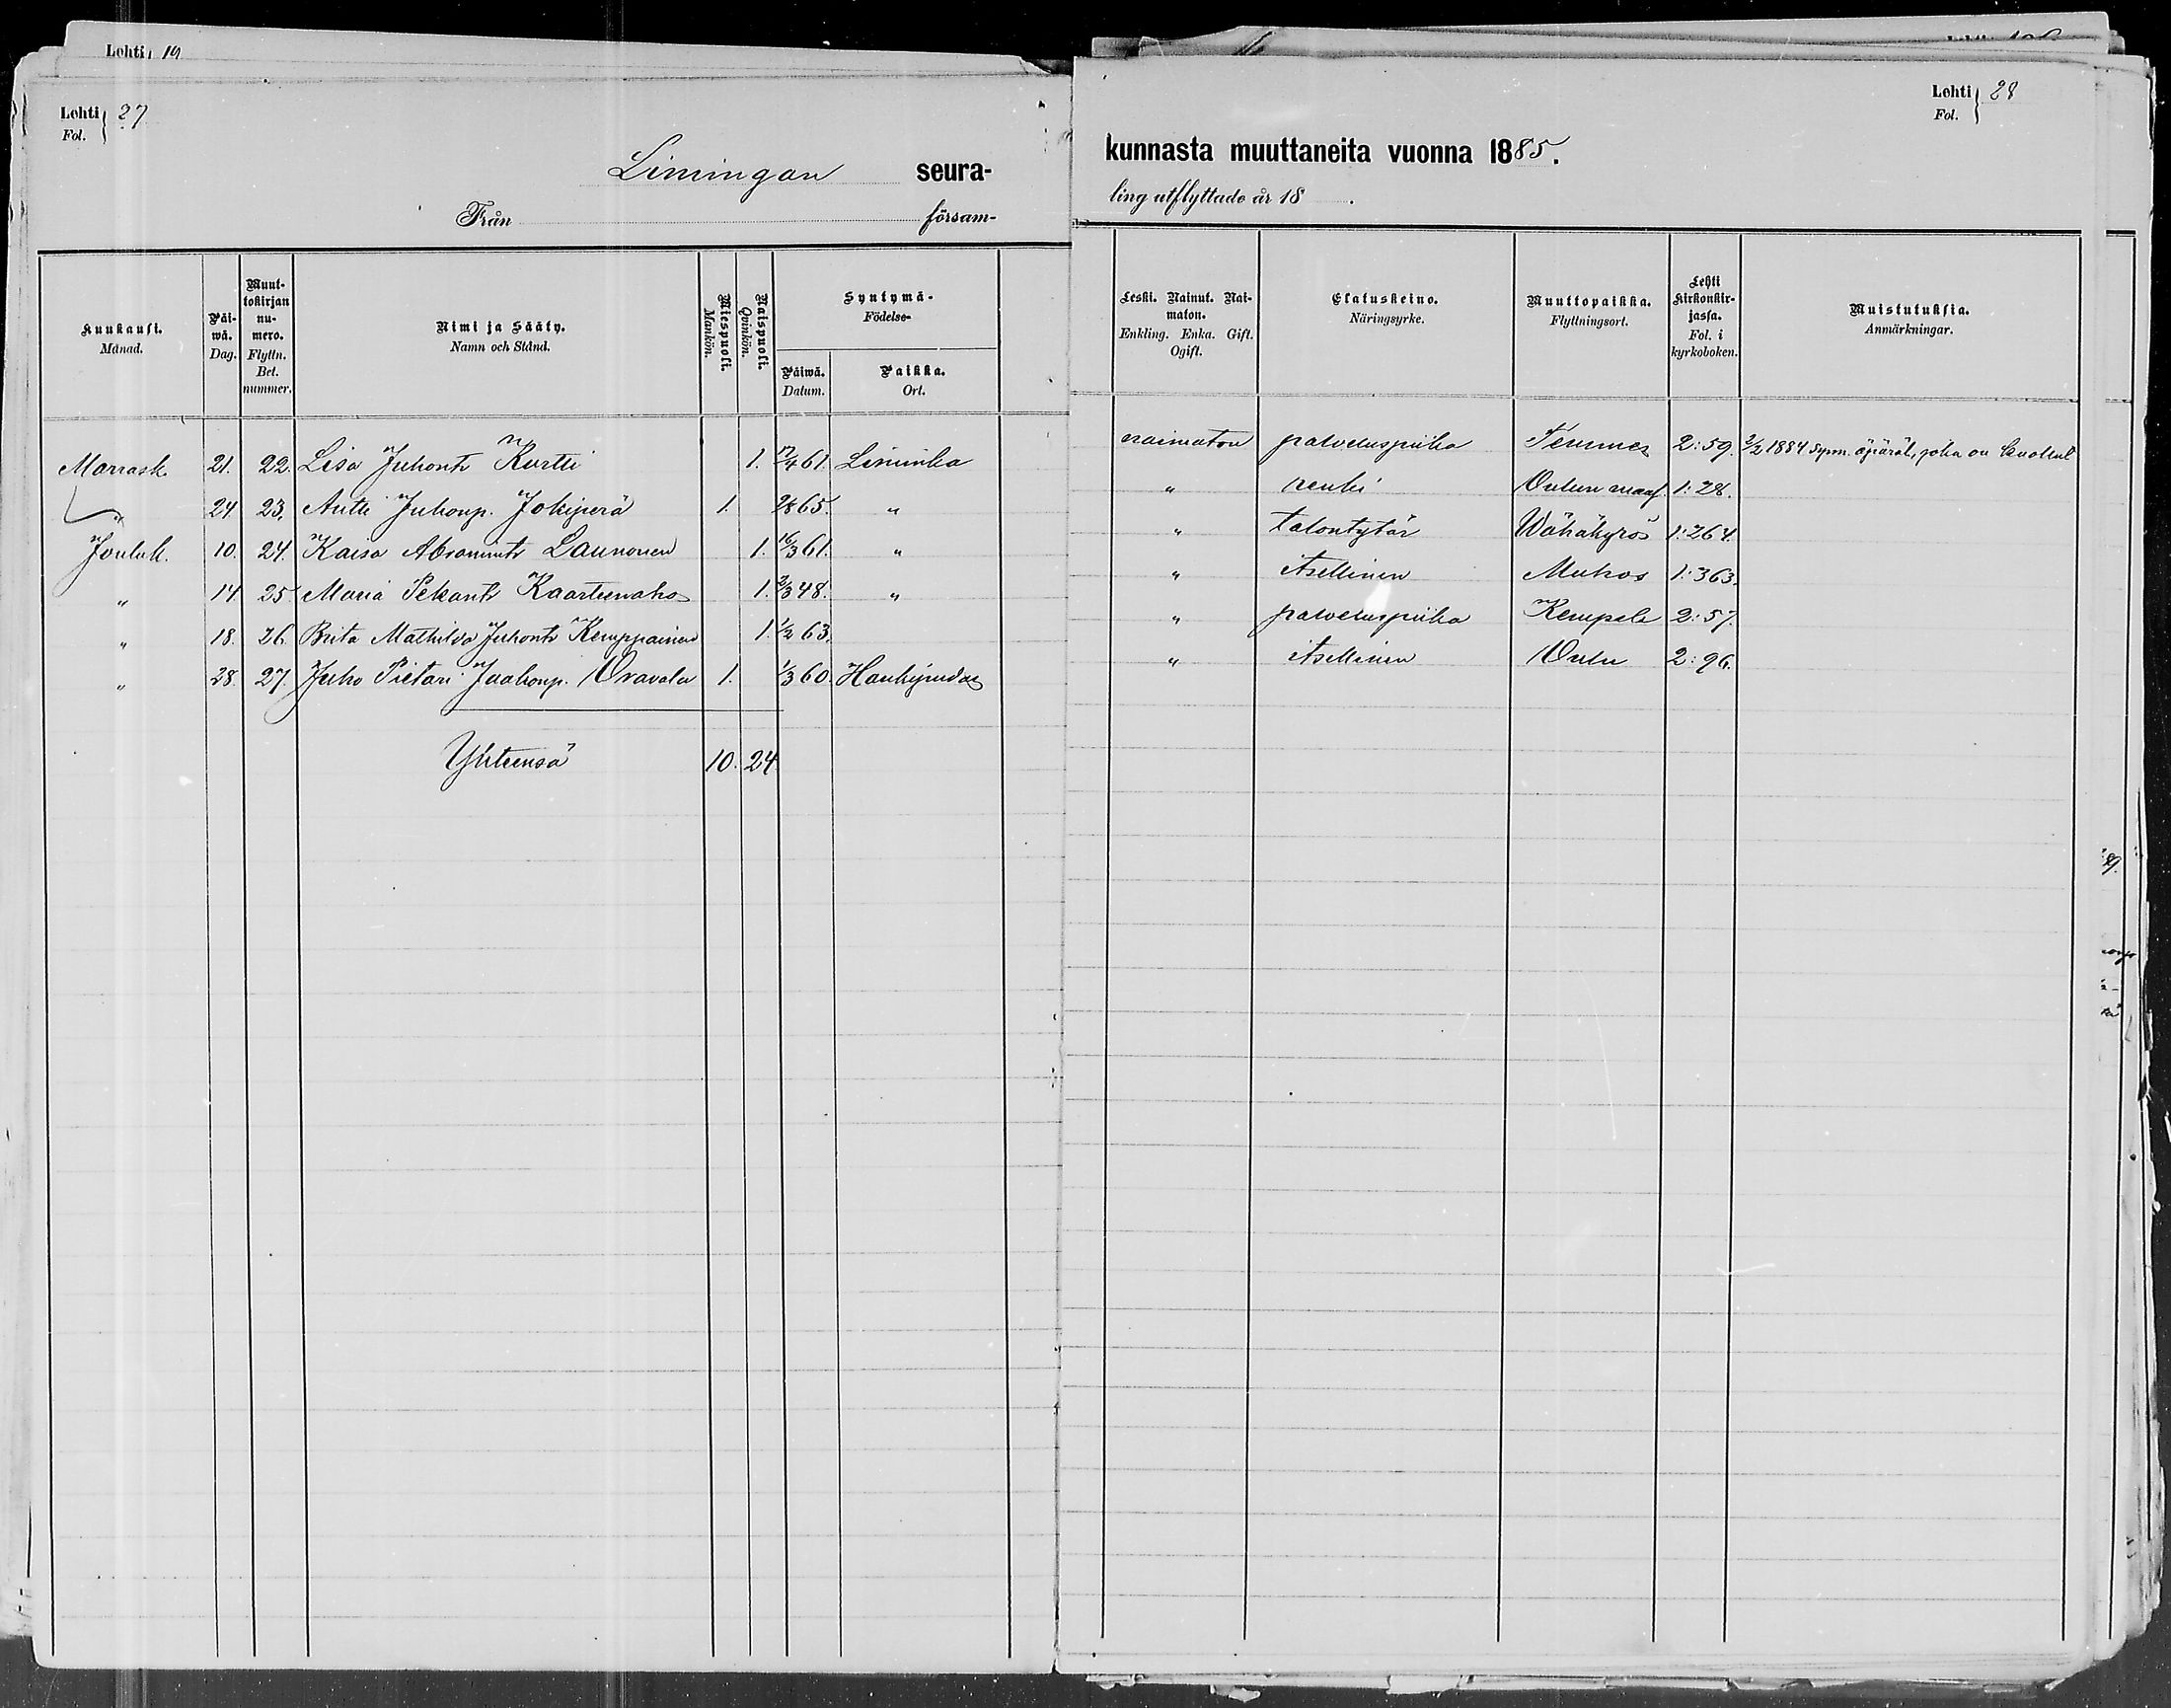 Lehti 19
Lehti Fol. 27
Limingan seura-
Från försam-
Kuukausi. Månad.
Päi-wä. Dag.
Muut-tokirjan nu-mero. Flyttn. Bet. nummer.
Nimi ja Sääty. Namn och Stånd.
Miespuoli. Mankön.
Naispuoli. Qvinkön.
Syntymä- Födelse-
Päiwä. Datum.
Paikka. Ort.
Marrask. 21. 22. Lisa Juhont. Kurtti 1. 17/4 61. Liminka
" 24 23. Antti Juhonp. Jokiperä 1. 2/8 65. "
Jouluk. 10. 24. Kaisa Abramint. Launonen 1. 16/3 61. "
" 14. 25. Maria Pekant. Kaarteenaho 1. 2/3 48. "
" 18. 26. Brita Mathilda Juhont. Kemppainen 1. 1/2 63.
" 28. 27. Juho Pietari Juahonp. Oravala 1. 1/3 60. Haukipudas
Yhteensä 10. 24.
Lehti Fol. 28
kunnasta muuttaneita vuonna 1885.
ling utflyttade år 18 .
Leski. Nainut. Nai-maton. Enkling. Enka. Gift. Ogift.
Elatuskeino. Näringsyrke.
Muuttopaikka. Flyttningsort.
Lehti Kirkonkir-jassa. Fol. i kyrkoboken.
Muistutuksia. Anmärkningar.
naimaton palveluspiika Temmes 2:59. 2/2 1884 synn. äpärät., joka on kuollut
" renki Oulun maas. 1:28.
" talontytär Wähäkyrö 1:264.
" itsellinen Muhos 1:363.
" palveluspiika Kempele 2:57.
" itsellinen Oulu 2:96.